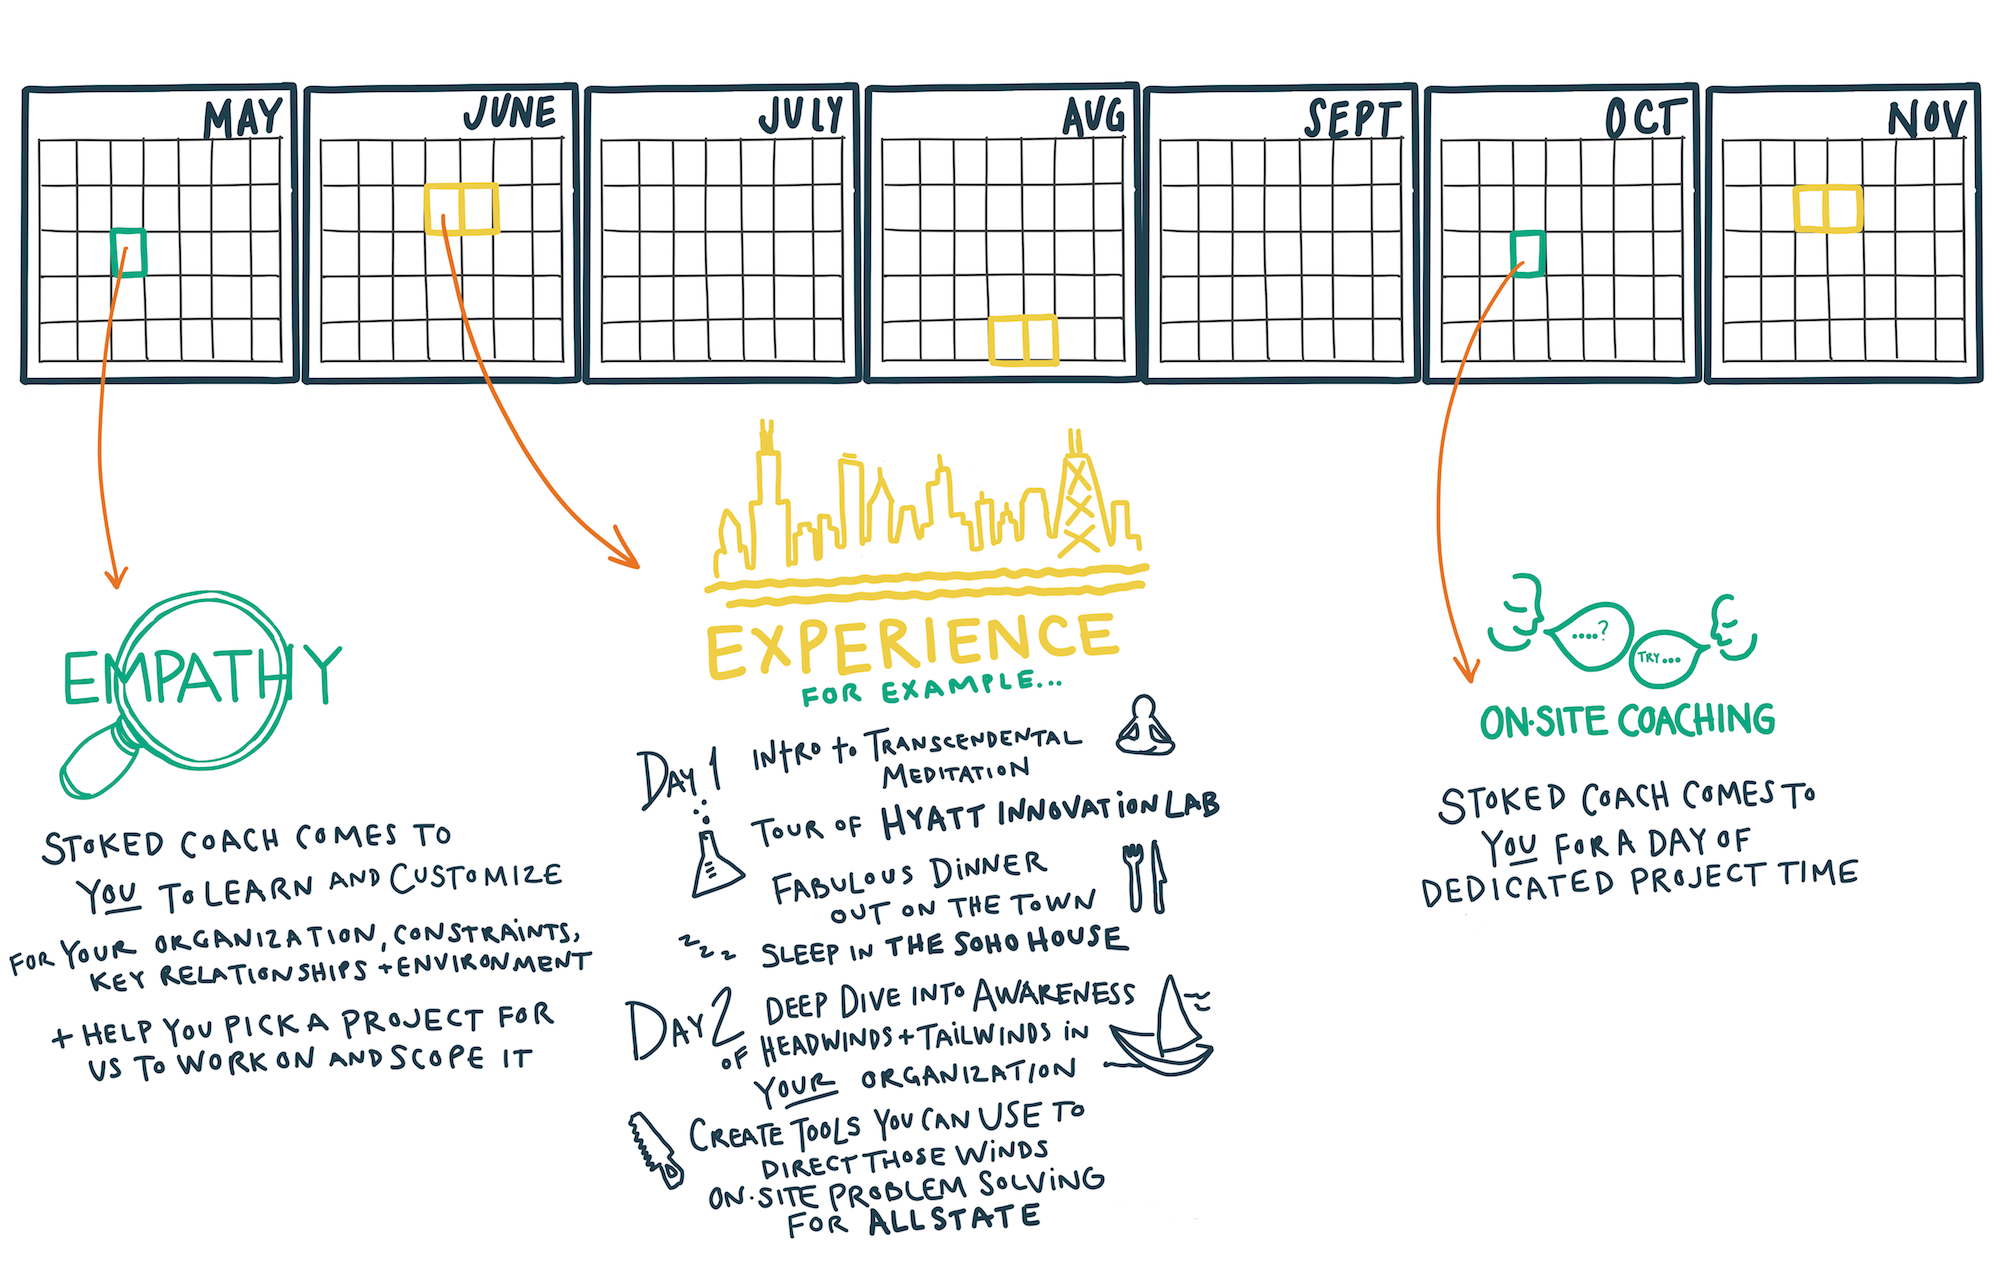 MAY
JUNE
JULY
AUG
SEPT
OCT
NOV
EMPATHY
STOKED COACH COMES TO
YOU TO LEARN AND CUSTOMIZE
FOR YOUR ORGANIZATION, CONSTRAINTS,
KEY RELATIONSHIPS + ENVIRONMENT
+ HELP YOU PICK A PROJECT FOR
US TO WORK ON AND SCOPE IT
EXPERIENCE
FOR EXAMPLE...
DAY 1
INTRO to TRANSCENDENTAL
MEDITATION
TOUR OF HYATT INNOVATION LAB
FABULOUS DINNER
OUT ON THE TOWN
zzzz SLEEP IN THE SOHO HOUSE
DAY 2
DEEP DIVE INTO AWARENESS
OF HEADWINDS + TAILWINDS IN
YOUR ORGANIZATION
CREATE TOOLS YOU CAN USE TO
DIRECT THOSE WINDS
ON-SITE PROBLEM SOLVING
FOR ALLSTATE
....?
TRY...
ON-SITE COACHING
STOKED COACH COMES TO
YOU FOR A DAY OF
DEDICATED PROJECT TIME